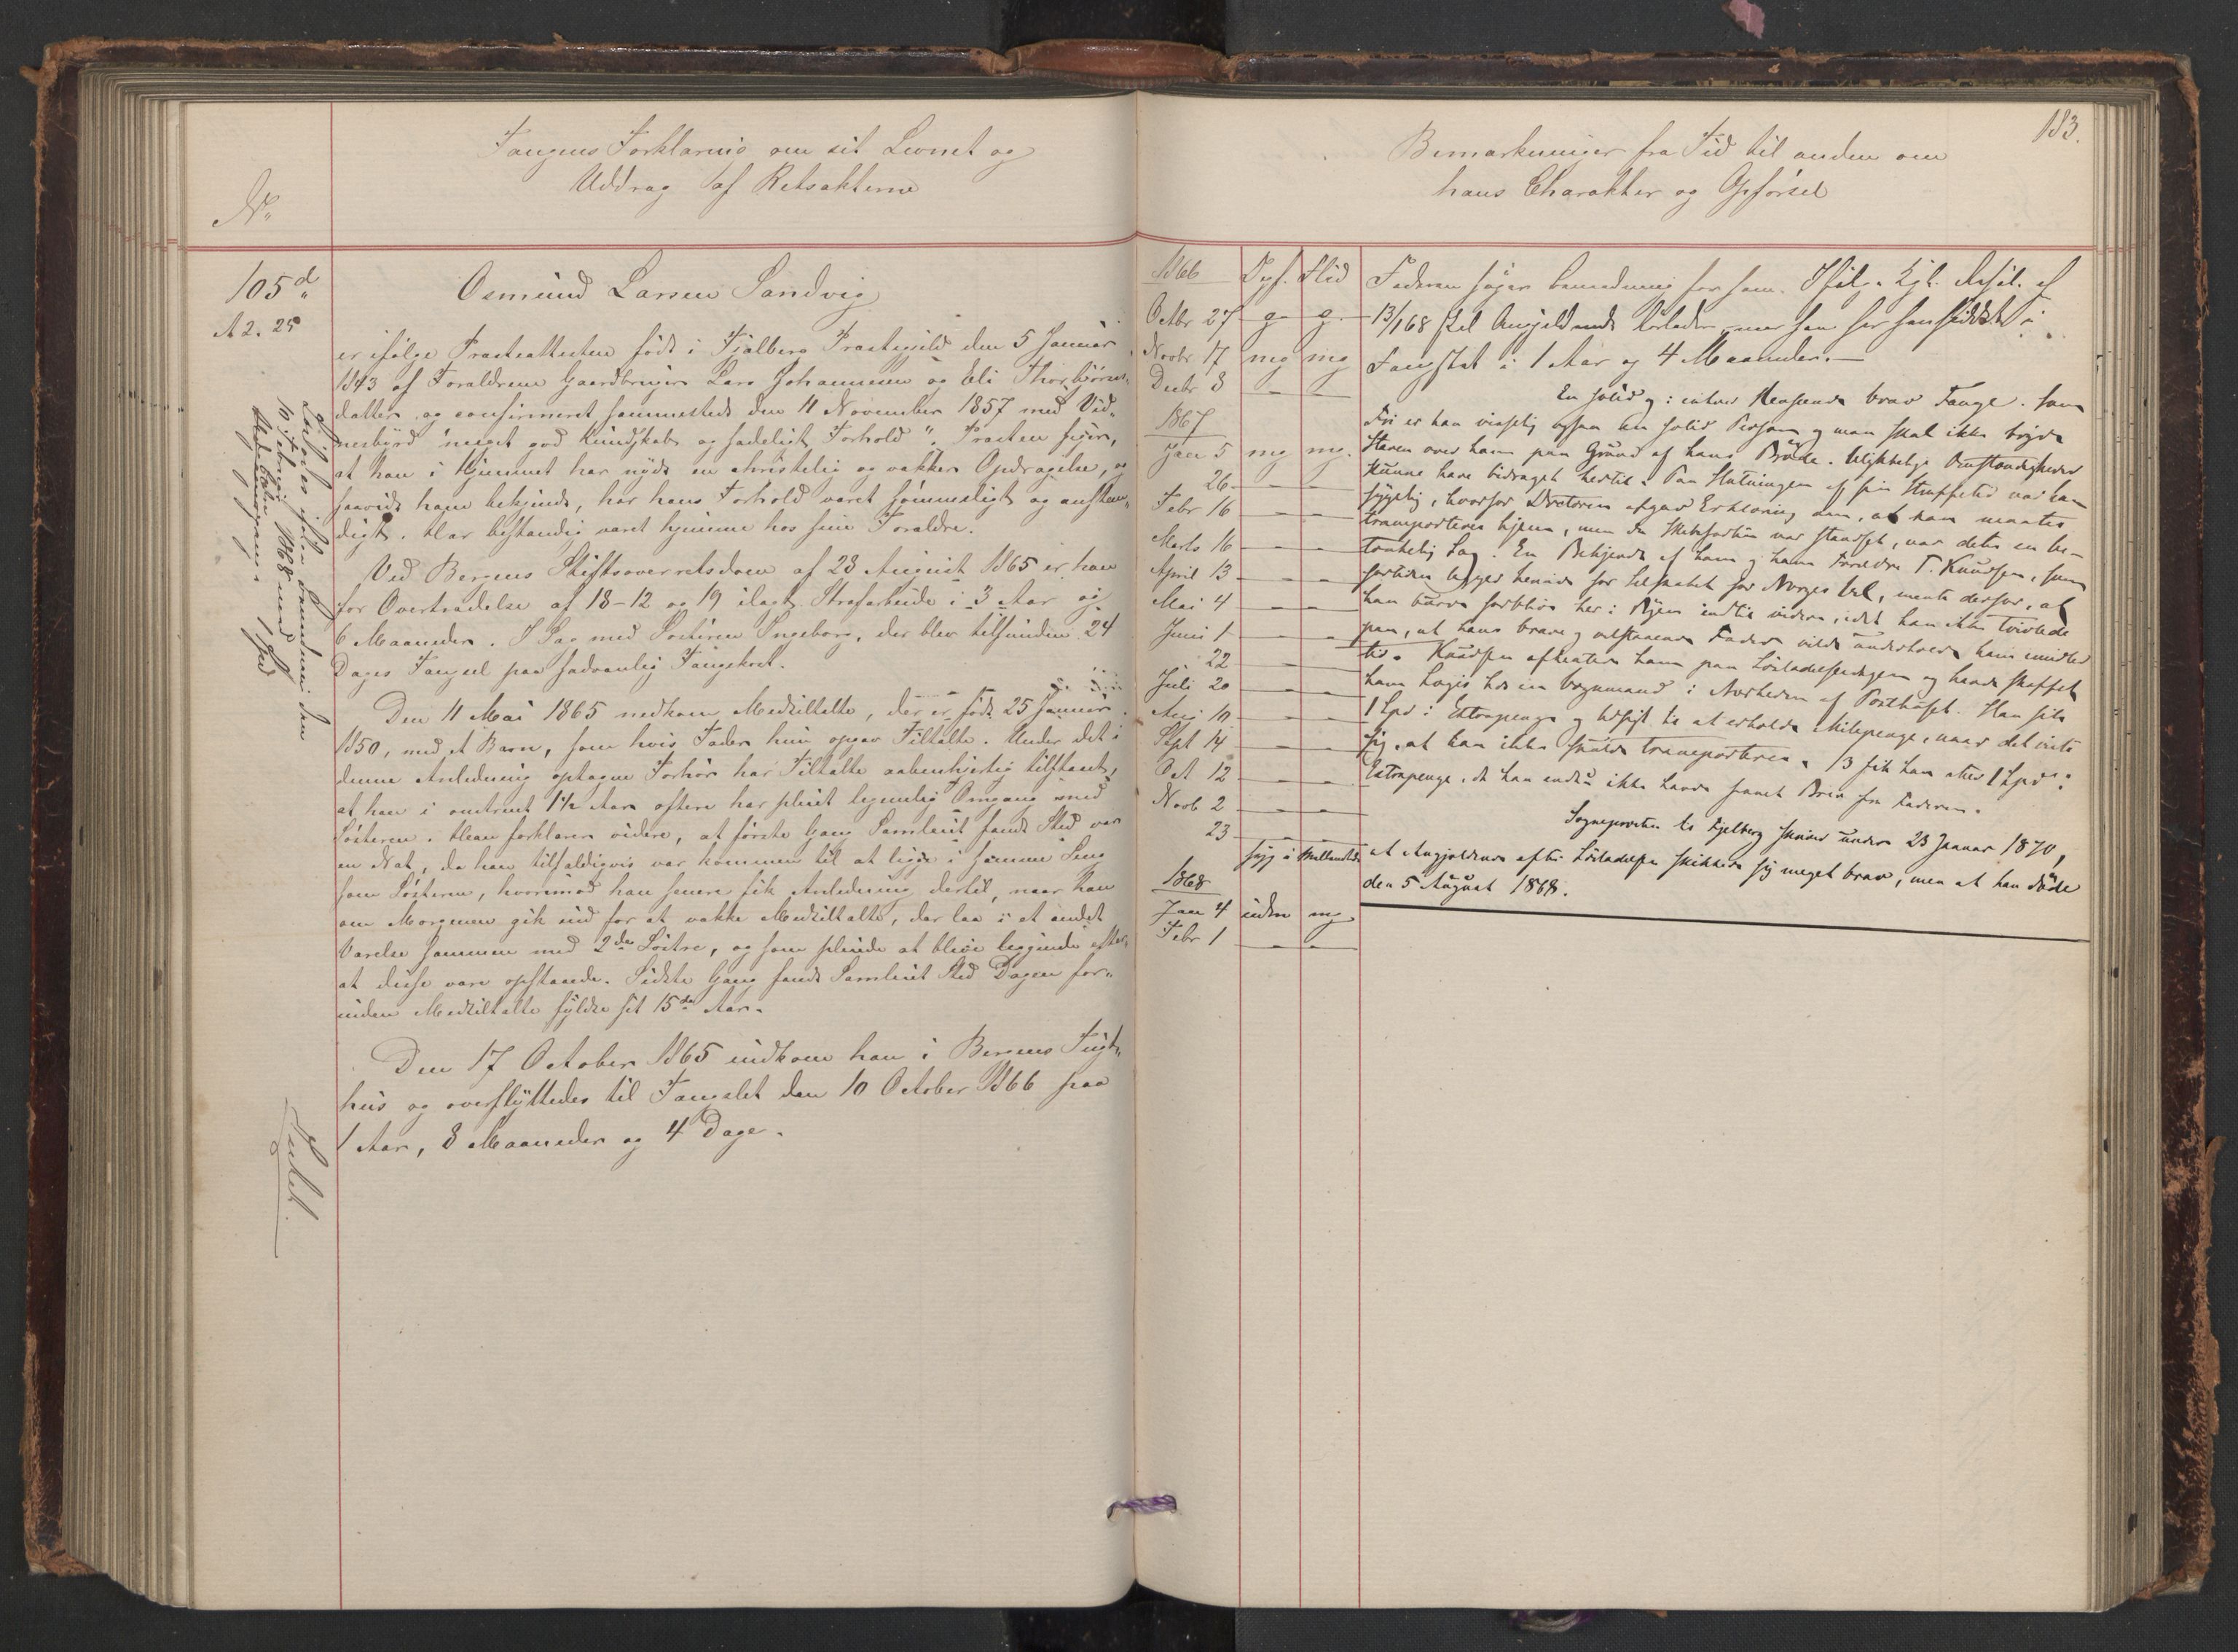 Fangens Forklaring om sit Levnet og
Uddrag af Retsakterne
No
105 d
A 2. 25
Osmund Larsen Sandvig
er ifølge Præsteattesten født i Fjælberg Præstegjeld den 5 Januar
1843 af Forældrene Gaardbruger Lars Johannesen og Eli Thorbjørns-
datter og confirmeret sammesteds den 11 November 1857 med Vid-
nesbyrd "meget god Kundskab og sædeligt Forhold". Præsten siger,
at han i Hjemmet har nydt en christelig og vakker Opdragelse, og
saavidt ham bekjendt, har hans Forhold været sømmeligt og anstæn-
digt. Har bestandig været hjemme hos sine Forældre.
Ved Bergens Stiftsoverretsdom af 28 August 1865 er han
for Overtrædelse af 18-12 og 19 ilagt Strafarbeide i 3 Aar og
6 Maaneder. I Sag med Søsteren Ingeborg, der blev tilfunden 24
Dages Fængsel paa sædvanlig Fangekost.
Den 11 Mai 1865 nedkom Medtiltalte, der er født 25 Januar
1850, med et Barn, som hvis Fader hun opgav Tiltalte. Under det i
denne Anledning optagne Forhør har Tiltalte aabenhjertig tilstaaet,
at han i omtrent 1½ Aar oftere har pleiet legemlig Omgang med
Søsteren. Han forklarer videre, at første Gang Samleiet fandt Sted var
en Nat, da han tilfældigvis var kommen til at ligge i samme Seng
som Søsteren, hvorimod han senere fik Anledning dertil, naar han
om Morgenen gik ind for at vække Medtiltalte, der laa i et andet
Værelse sammen med 2de Søstre, og som pleiede at blive liggende efter
at disse vare opstaaede. Sidste Gang fandt Samleiet Sted Dagen for-
inden Medtiltalte fyldte sit 15de Aar.
Den 17 October 1865 indkom han i Bergens Tugt-
hus og overflyttedes til Fængslet den 10 October 1866 paa
1 Aar, 8 Maaneder og 4 Dage.
Løslades ifølge Benaadning den
10 Februar 1868 med
1 Spd
183.
Bemærkninger fra Tid til anden om
hans Charakter og Opførsel
1866 Opf. Flid
Octbr 27 g. g.
Novbr 17 mg mg
Decbr 8 – –
1867
Jan 5 mg mg.
26 – –
Febr 16 – –
Marts 16 – –
April 13 – –
Mai 4 – –
Juni 1 – –
22 – –
Juli 20 – –
Aug 10 – –
Sept 14 – –
Oct 12 – –
Novb 2 – –
23 – –
syg i Mellemtiden
1868
Jan 4 uden mg
Febr 1 – –
Faderen søger benaadning for ham. Ifølge Kgl. Resol. af
13/1 68 skal Angjeldende løslades, naar han har hensiddet i
Fængslet i 1 Aar og 4 Maaneder.
En solid og i enhver Henseende brav Fange. Som
Fri er han vistnok ogsaa en solid Person og man skal ikke bryde
Staven over ham paa Grund af hans Brøde. Ulykkelige Omstændigheder
kunne have bidraget hertil. Paa Slutningen af sin Straffetid var han
sygelig, hvorfor Doctoren afgav Erklæring om, at han maatte
transporteres hjem, men da Skibsfarten var standset, var dette en be-
tænkelig Sag. En Bekjendt af ham og hans Forældre T. Knudsen, som
for Selskabet for Norges Vel, mente derfor, at
han burde forblive her i Byen indtil videre, idet han ikke tvivlede
paa, at hans brave og velstaaende Fader vilde underholde ham imidler
tid. Knudsen afhentede ham paa Løsladelsesdagen og havde skaffet
ham Logis hos en Vognmand i Nærheden af Posthuset. Han fik
1 Spd i Extrapenge og Udsigt til at erholde Milepenge, naar det viste
sig, at han ikke skulde transporteres. fik han atter 1 Spd i
Extrapenge, da han endnu ikke havde faaet Brev fra Faderen.
Sognepresten til Fjelberg skriver under 23 Januar 1870,
at Angjeldende efter Løsladelsen skikkede sig meget brav, men at han døde
den 5 August 1868.